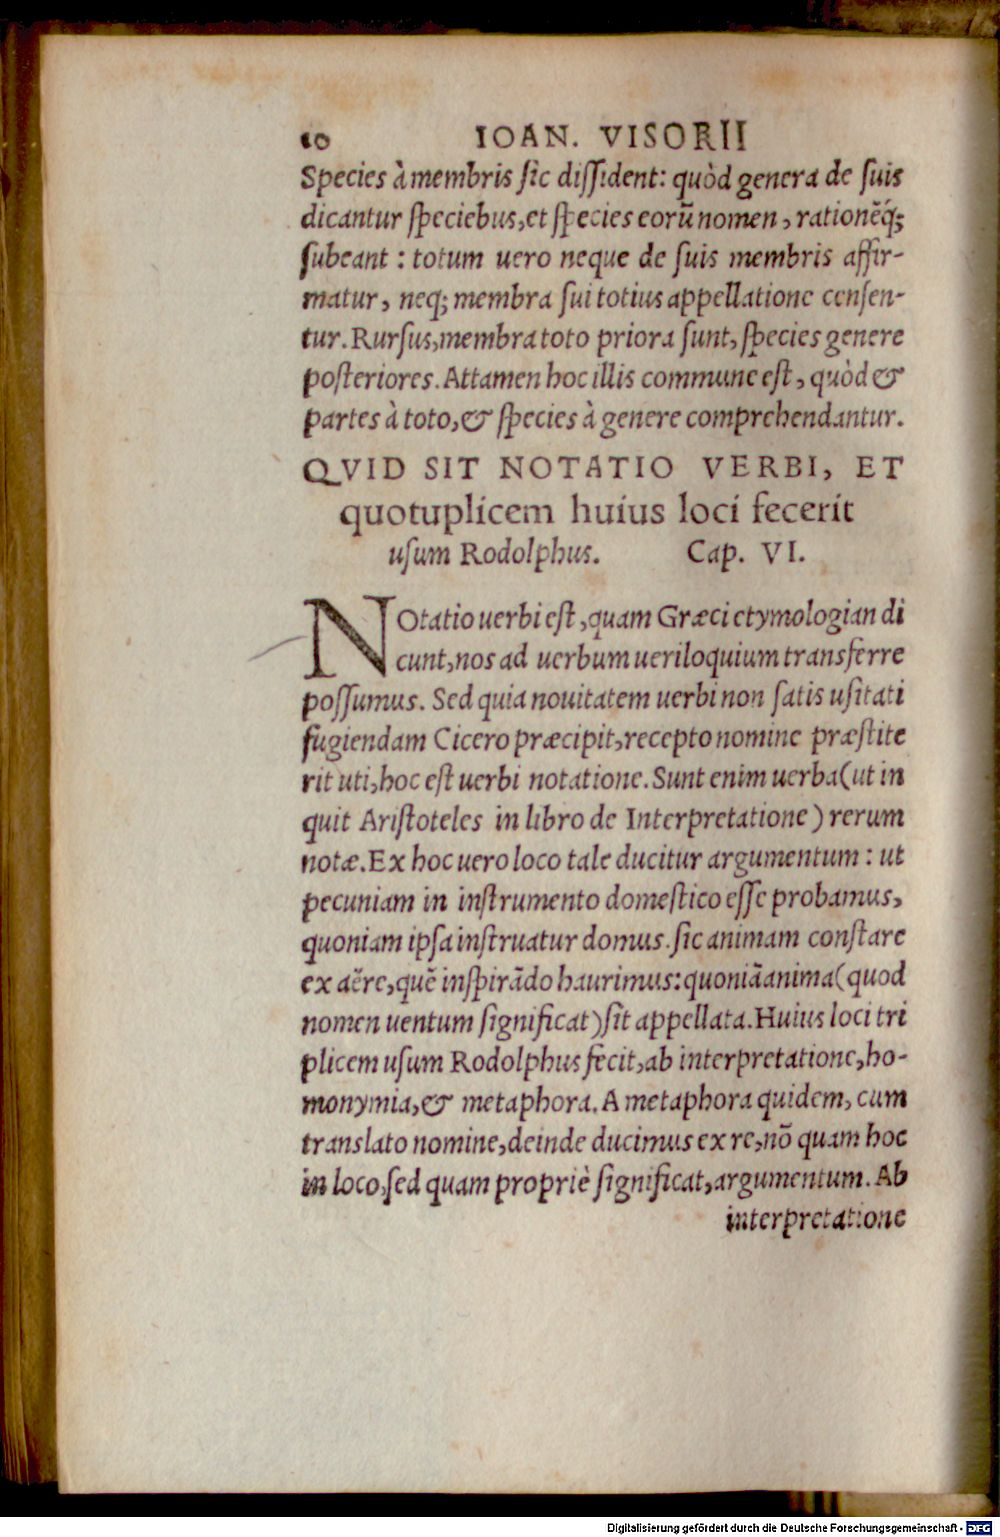 10 IOAN. VISORII
Species à membris sic dissident: quòd genera de suis
dicantur speciebus, et species eorū nomen, rationēq́;
subeant : totum uero neque de suis membris affir-
matur, neq; membra sui totius appellatione censen-
tur. Rursus, membra toto priora sunt, species genere
posteriores. Attamen hoc illis commune est, quòd &
partes à toto, & species à genere comprehendantur.
QVID SIT NOTATIO VERBI, ET
quotuplicem huius loci fecerit
usum Rodolphus. Cap. VI.
NOtatio uerbi est, quam Græci etymologian di
cunt, nos ad uerbum ueriloquium transferre
possumus. Sed quia nouitatem uerbi non satis usitati
fugiendam Cicero præcipit, recepto nomine præstite
rit uti, hoc est uerbi notatione. Sunt enim uerba (ut in
quit Aristoteles in libro de Interpretatione) rerum
notæ. Ex hoc uero loco tale ducitur argumentum : ut
pecuniam in instrumento domestico esse probamus,
quoniam ipsa instruatur domus. sic animam constare
ex aëre, quē inspirādo haurimus: quoniā anima (quod
nomen uentum significat) sit appellata. Huius loci tri
plicem usum Rodolphus fecit, ab interpretatione, ho-
monymia, & metaphora. A metaphora quidem, cum
translato nomine, deinde ducimus ex re, nō quam hoc
in loco, sed quam propriè significat, argumentum. Ab
interpretatione
Digitalisierung gefördert durch die Deutsche Forschungsgemeinschaft - DFG